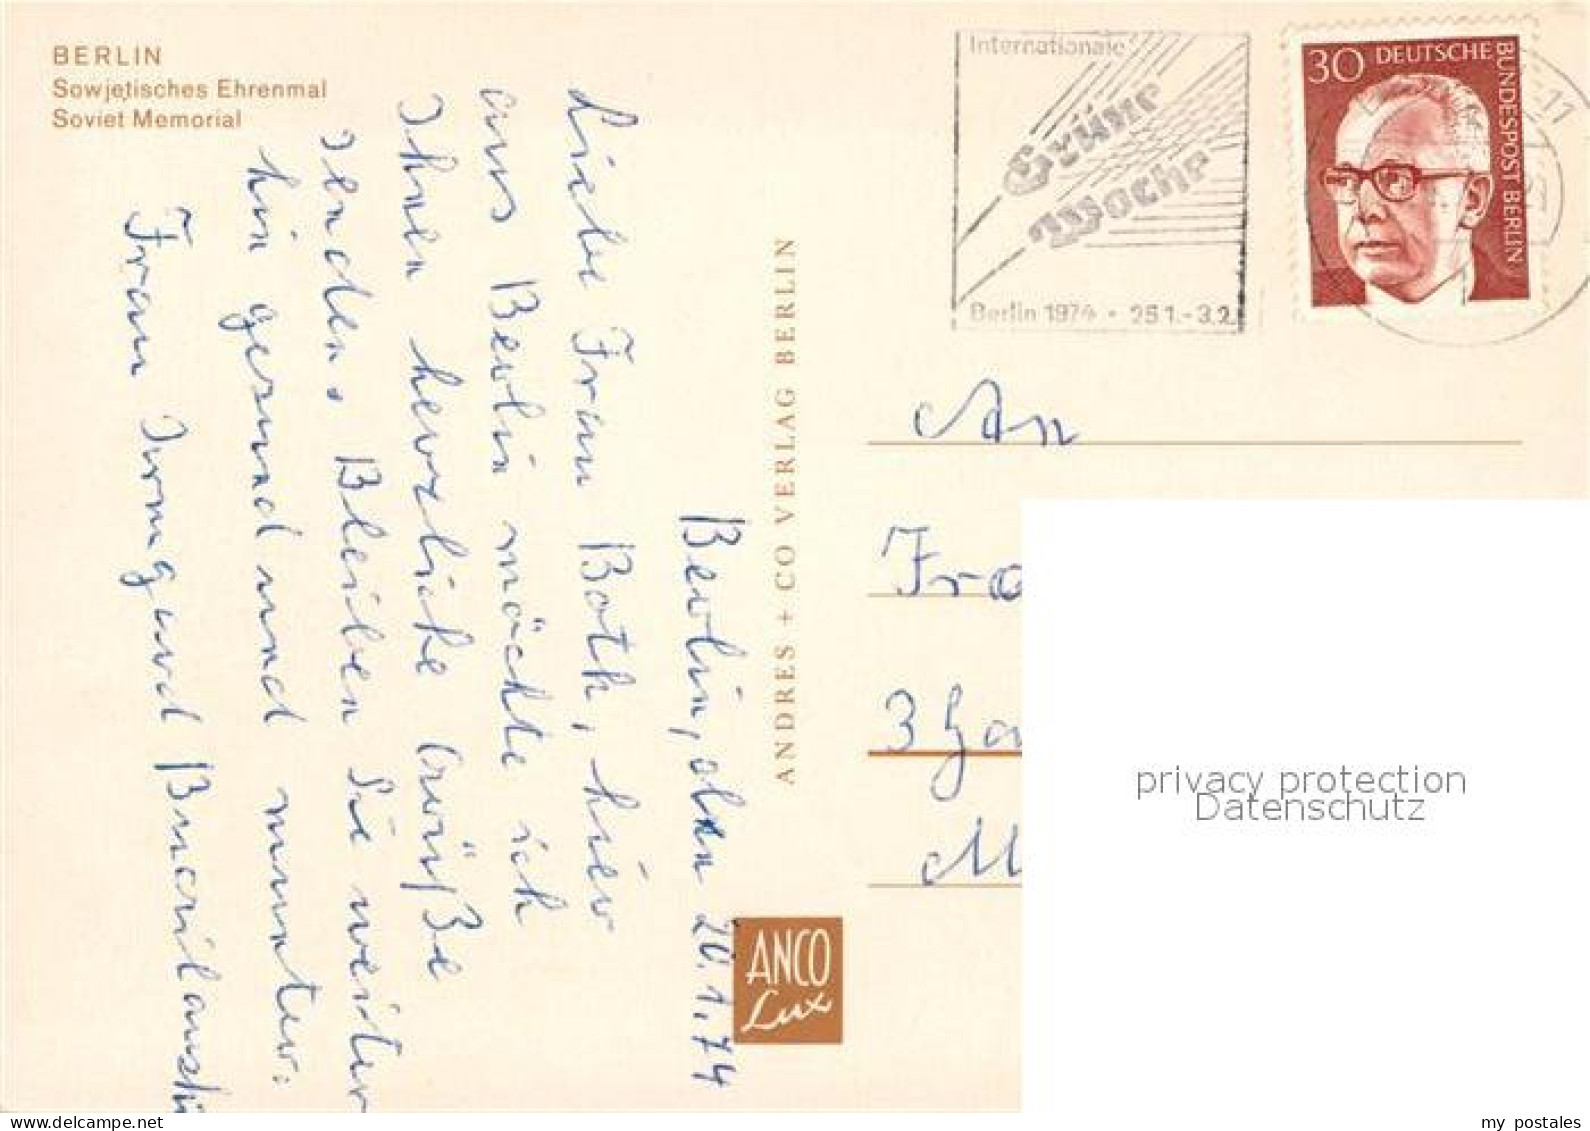 BERLIN
Sowjetisches Ehrenmal
Soviet Memorial
Berlin, den 20.1.74
Liebe Frau Both, hier
aus Berlin möchte ich
Ihnen herzliche Grüße
senden. Bleiben Sie weiter
hin gesund und munter.
Frau Irmgard
ANDRES + CO VERLAG BERLIN
ANCO
Lux
Internationale
Grüne
Woche
Berlin 1974 · 25.1.-3.2.
30 DEUTSCHE
BUNDESPOST BERLIN
-11
An
Fra
3 Ha
M
privacy protection
Datenschutz
my postales